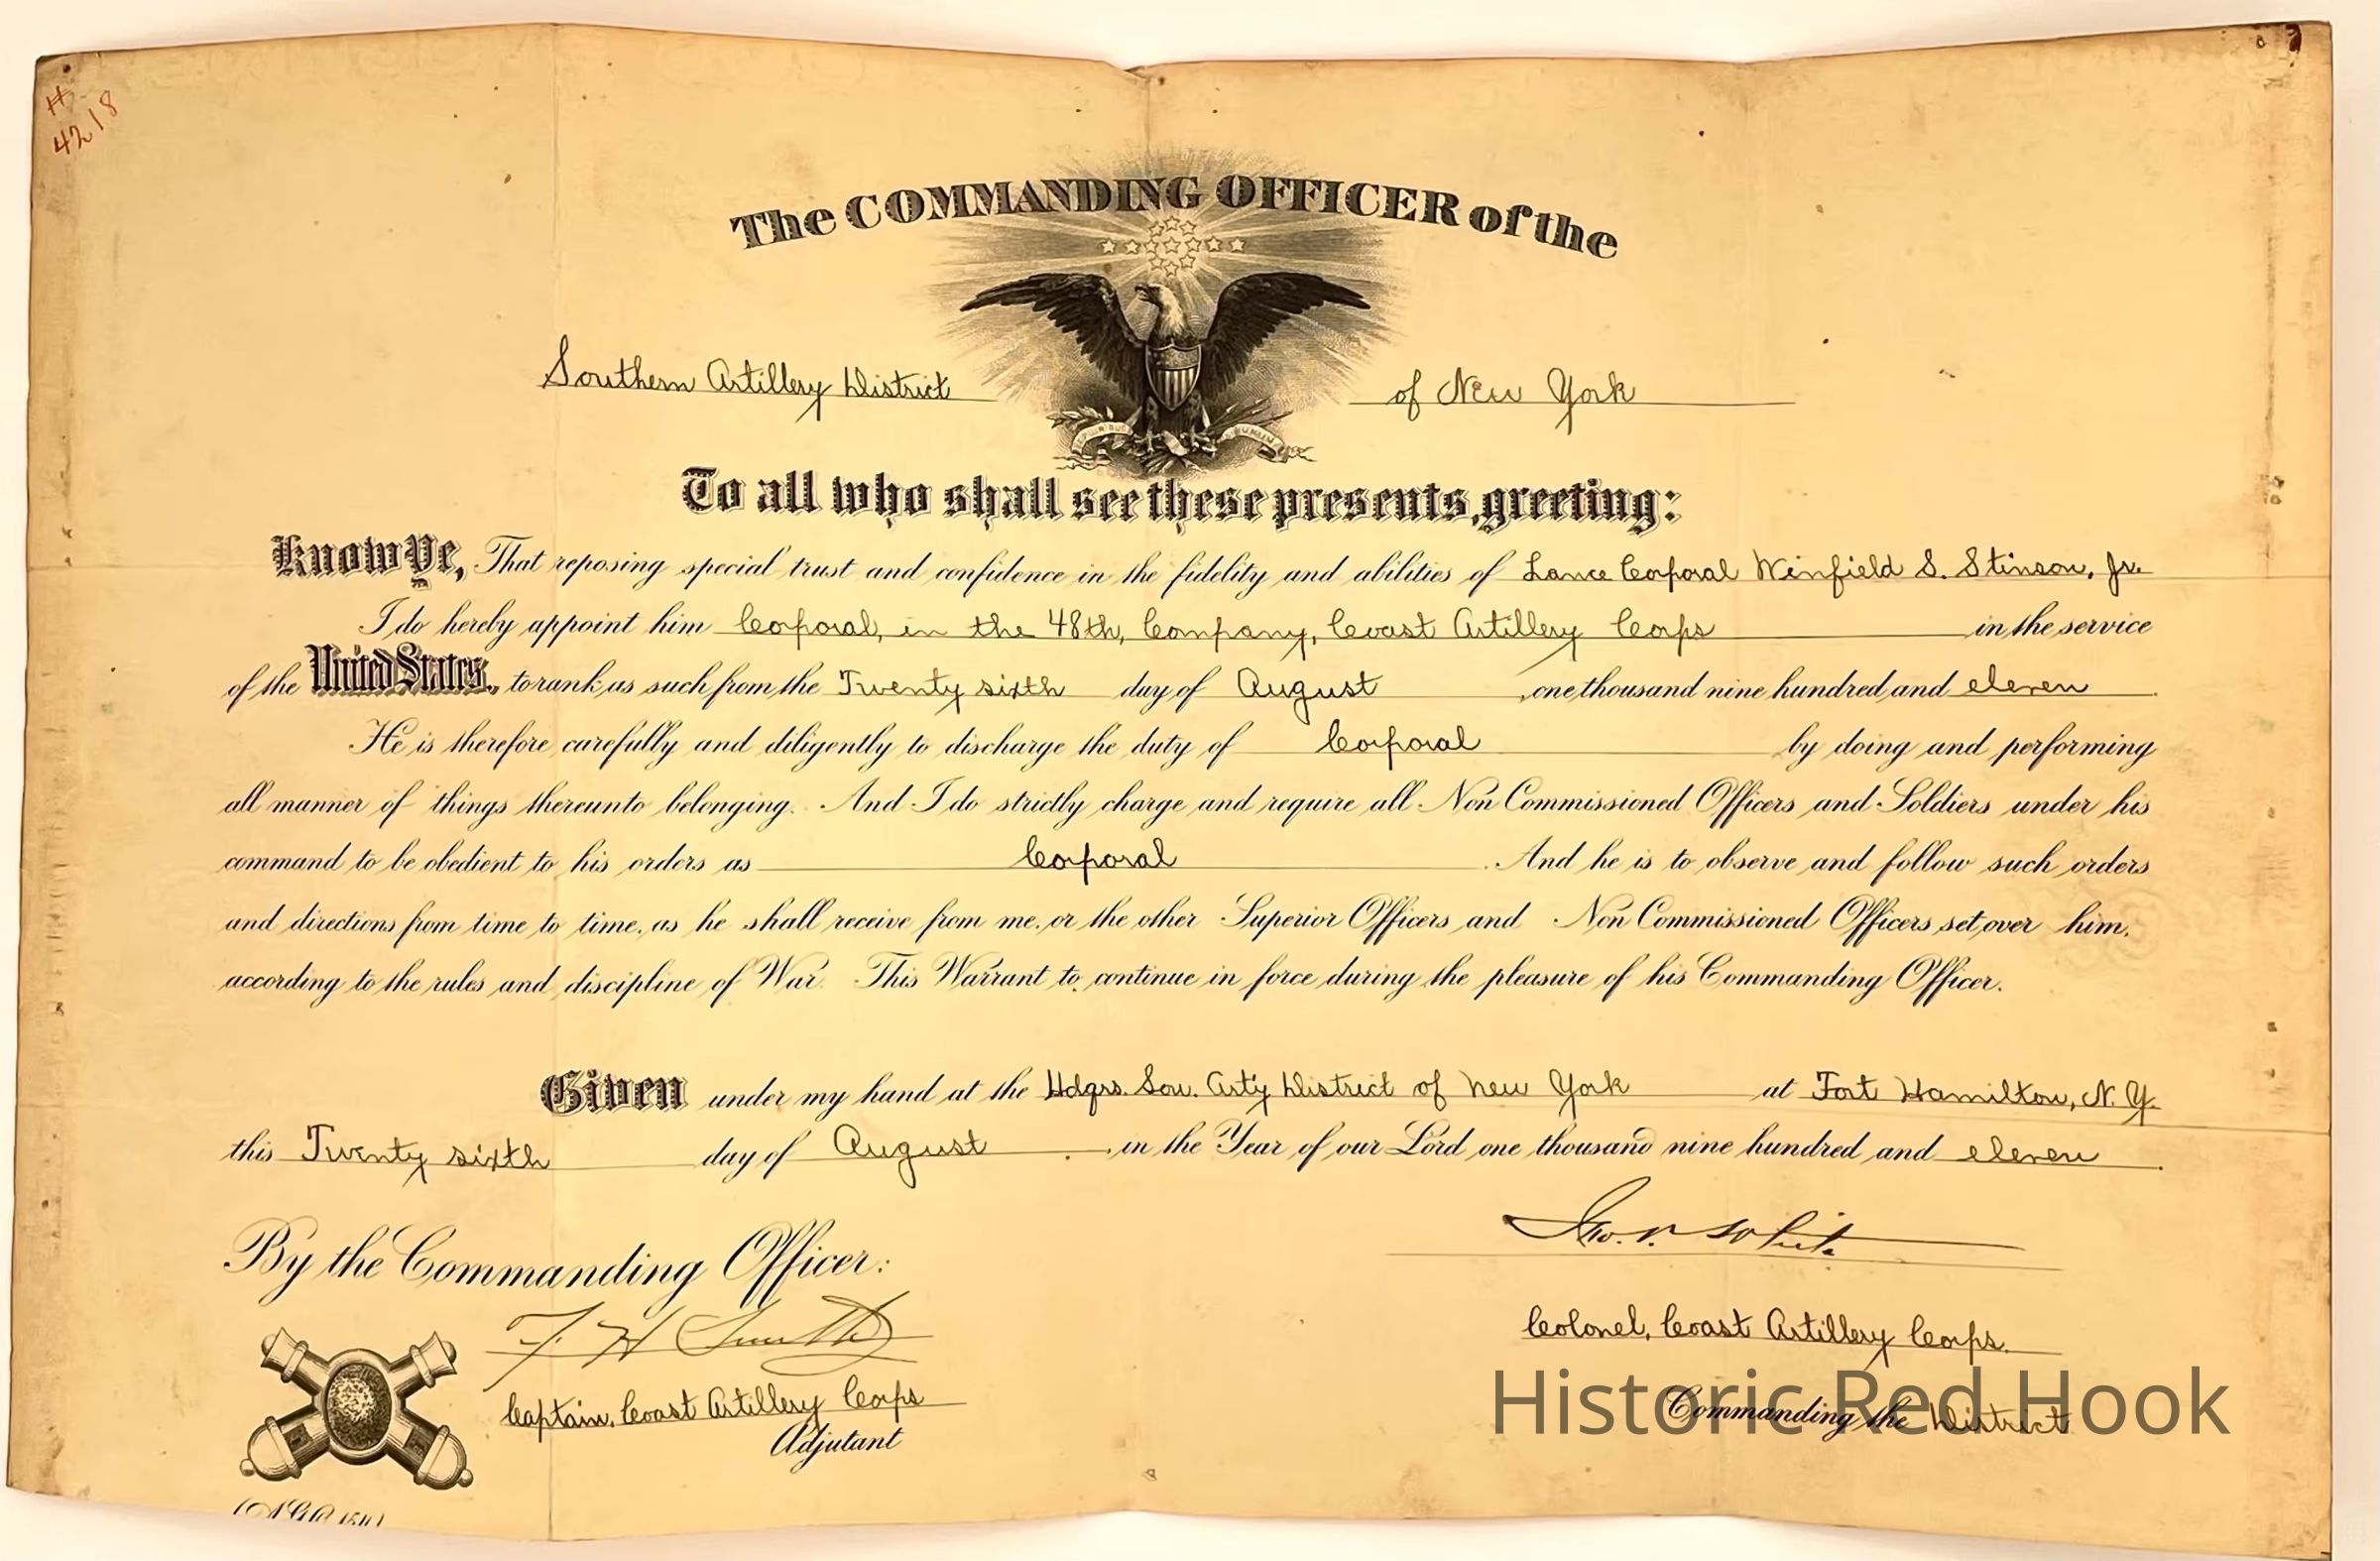 #
4218
The COMMANDING OFFICER of the
Southern Artillery District of New York
E PLURIBUS UNUM
To all who shall see these presents, greeting:
Know Ye, That reposing special trust and confidence in the fidelity and abilities of Lance Corporal Winfield S. Stinson, Jr.
I do hereby appoint him Corporal, in the 48th, Company, Coast Artillery Corps in the service
of the United States, to rank as such from the Twenty sixth day of August, one thousand nine hundred and eleven.
He is therefore carefully and diligently to discharge the duty of Corporal by doing and performing
all manner of things thereunto belonging. And I do strictly charge and require all Non Commissioned Officers and Soldiers under his
command to be obedient to his orders as Corporal. And he is to observe and follow such orders
and directions from time to time, as he shall receive from me, or the other Superior Officers and Non Commissioned Officers set over him,
according to the rules and discipline of War. This Warrant to continue in force during the pleasure of his Commanding Officer.
Given under my hand at the Hdqrs. Sou. Arty District of New York at Fort Hamilton, N.Y.
this Twenty sixth day of August, in the Year of our Lord one thousand nine hundred and eleven.
Geo. F. White
By the Commanding Officer:
F. H. Smith
Colonel, Coast Artillery Corps.
Captain, Coast Artillery Corps
Commanding the District
Adjutant
Historic Red Hook